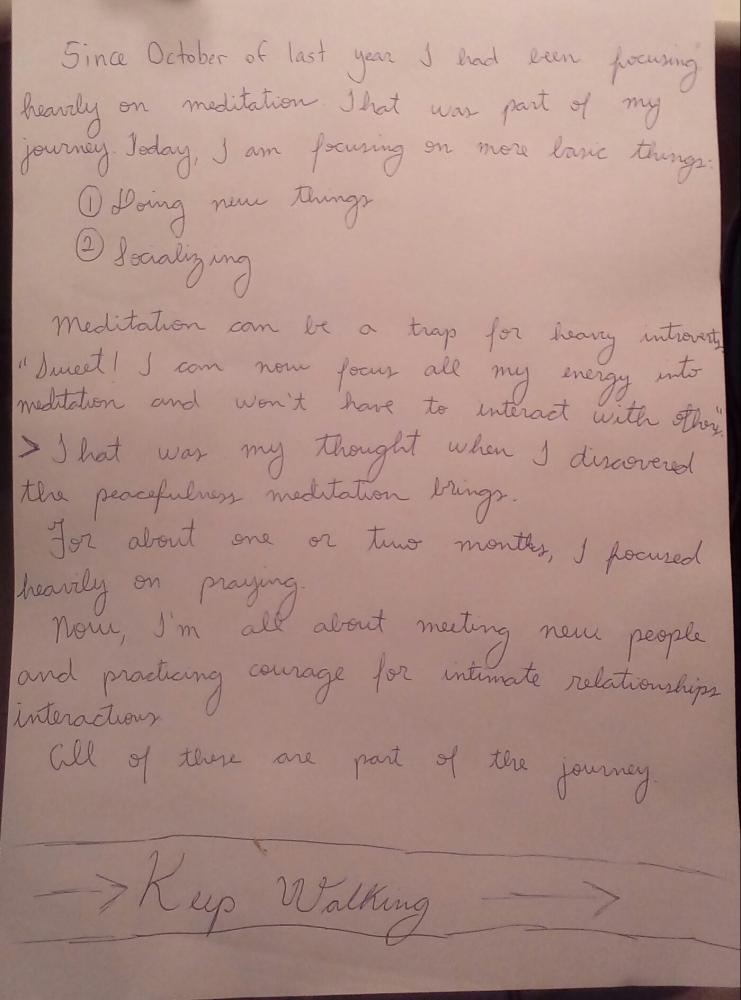 Since October of last year I had been focusing
heavily on meditation. That was part of my
journey. Today, I am focusing on more basic things:
① Doing new things
② Socializing
Meditation can be a trap for heavy introverts.
"Sweet! I can now focus all my energy into
meditation and won't have to interact with others."
> That was my thought when I discovered
the peacefulness meditation brings.
For about one or two months, I focused
heavily on praying.
Now, I'm all about meeting new people
and practicing courage for intimate relationships
interactions
All of these are part of the journey.
→ Keep Walking →